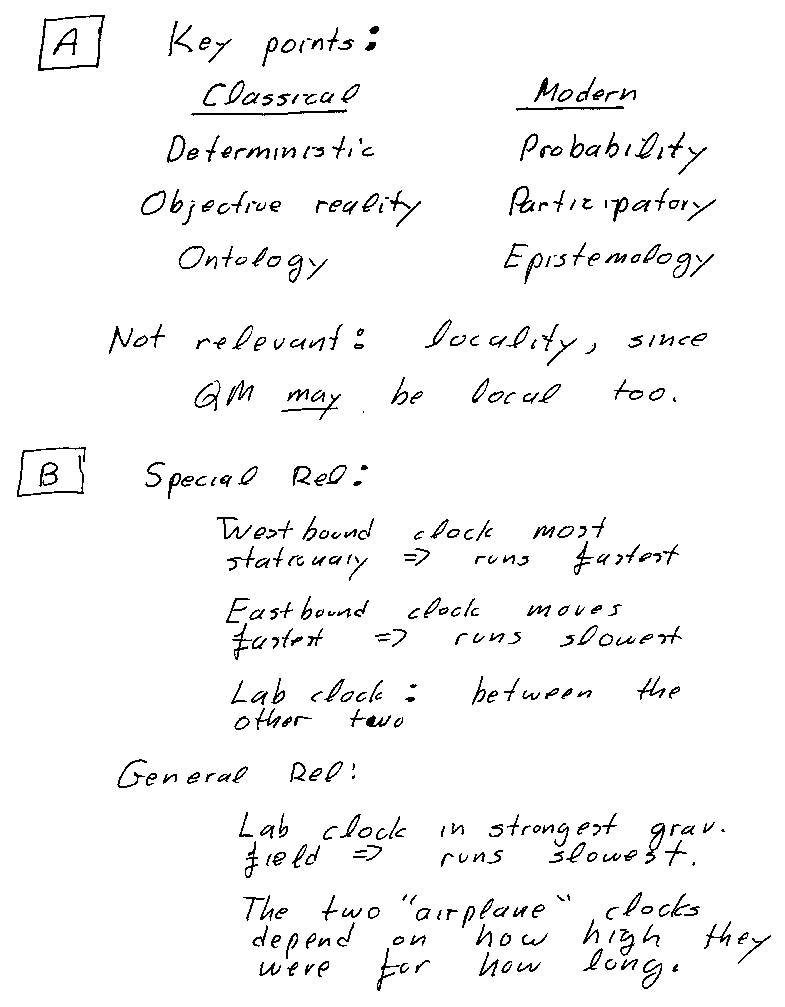 A Key points:
Classical Modern
Deterministic Probability
Objective reality Participatory
Ontology Epistemology
Not relevant: locality, since
QM may be local too.
B Special Rel:
Westbound clock most
stationary => runs fastest
Eastbound clock moves
fastest => runs slowest
Lab clock: between the
other two
General Rel:
Lab clock in strongest grav.
field => runs slowest.
The two "airplane" clocks
depend on how high they
were for how long.